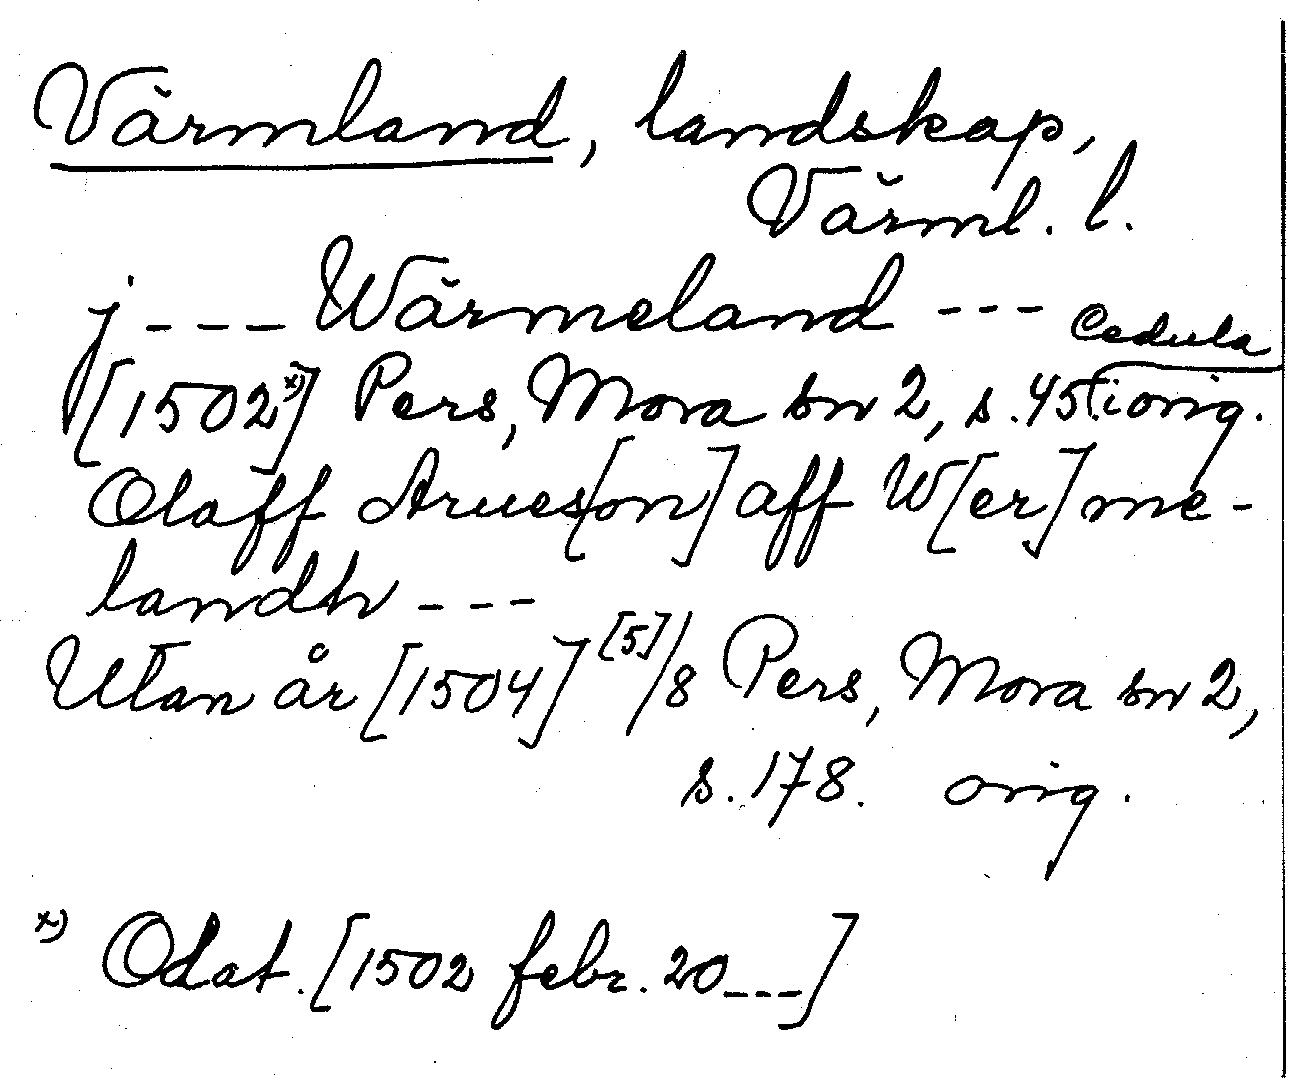 Värmland, landskap,
Värml. l.
j --- Wärmeland --- Cedula
[1502x)] Pers, Mora sn 2, s. 45. i orig.
Olaff Arues[on] aff W[er]me-
landh ---
Utan år [1504] [5]/8 Pers, Mora sn 2,
s. 178. orig.
x) Odat. [1502 febr. 20---]